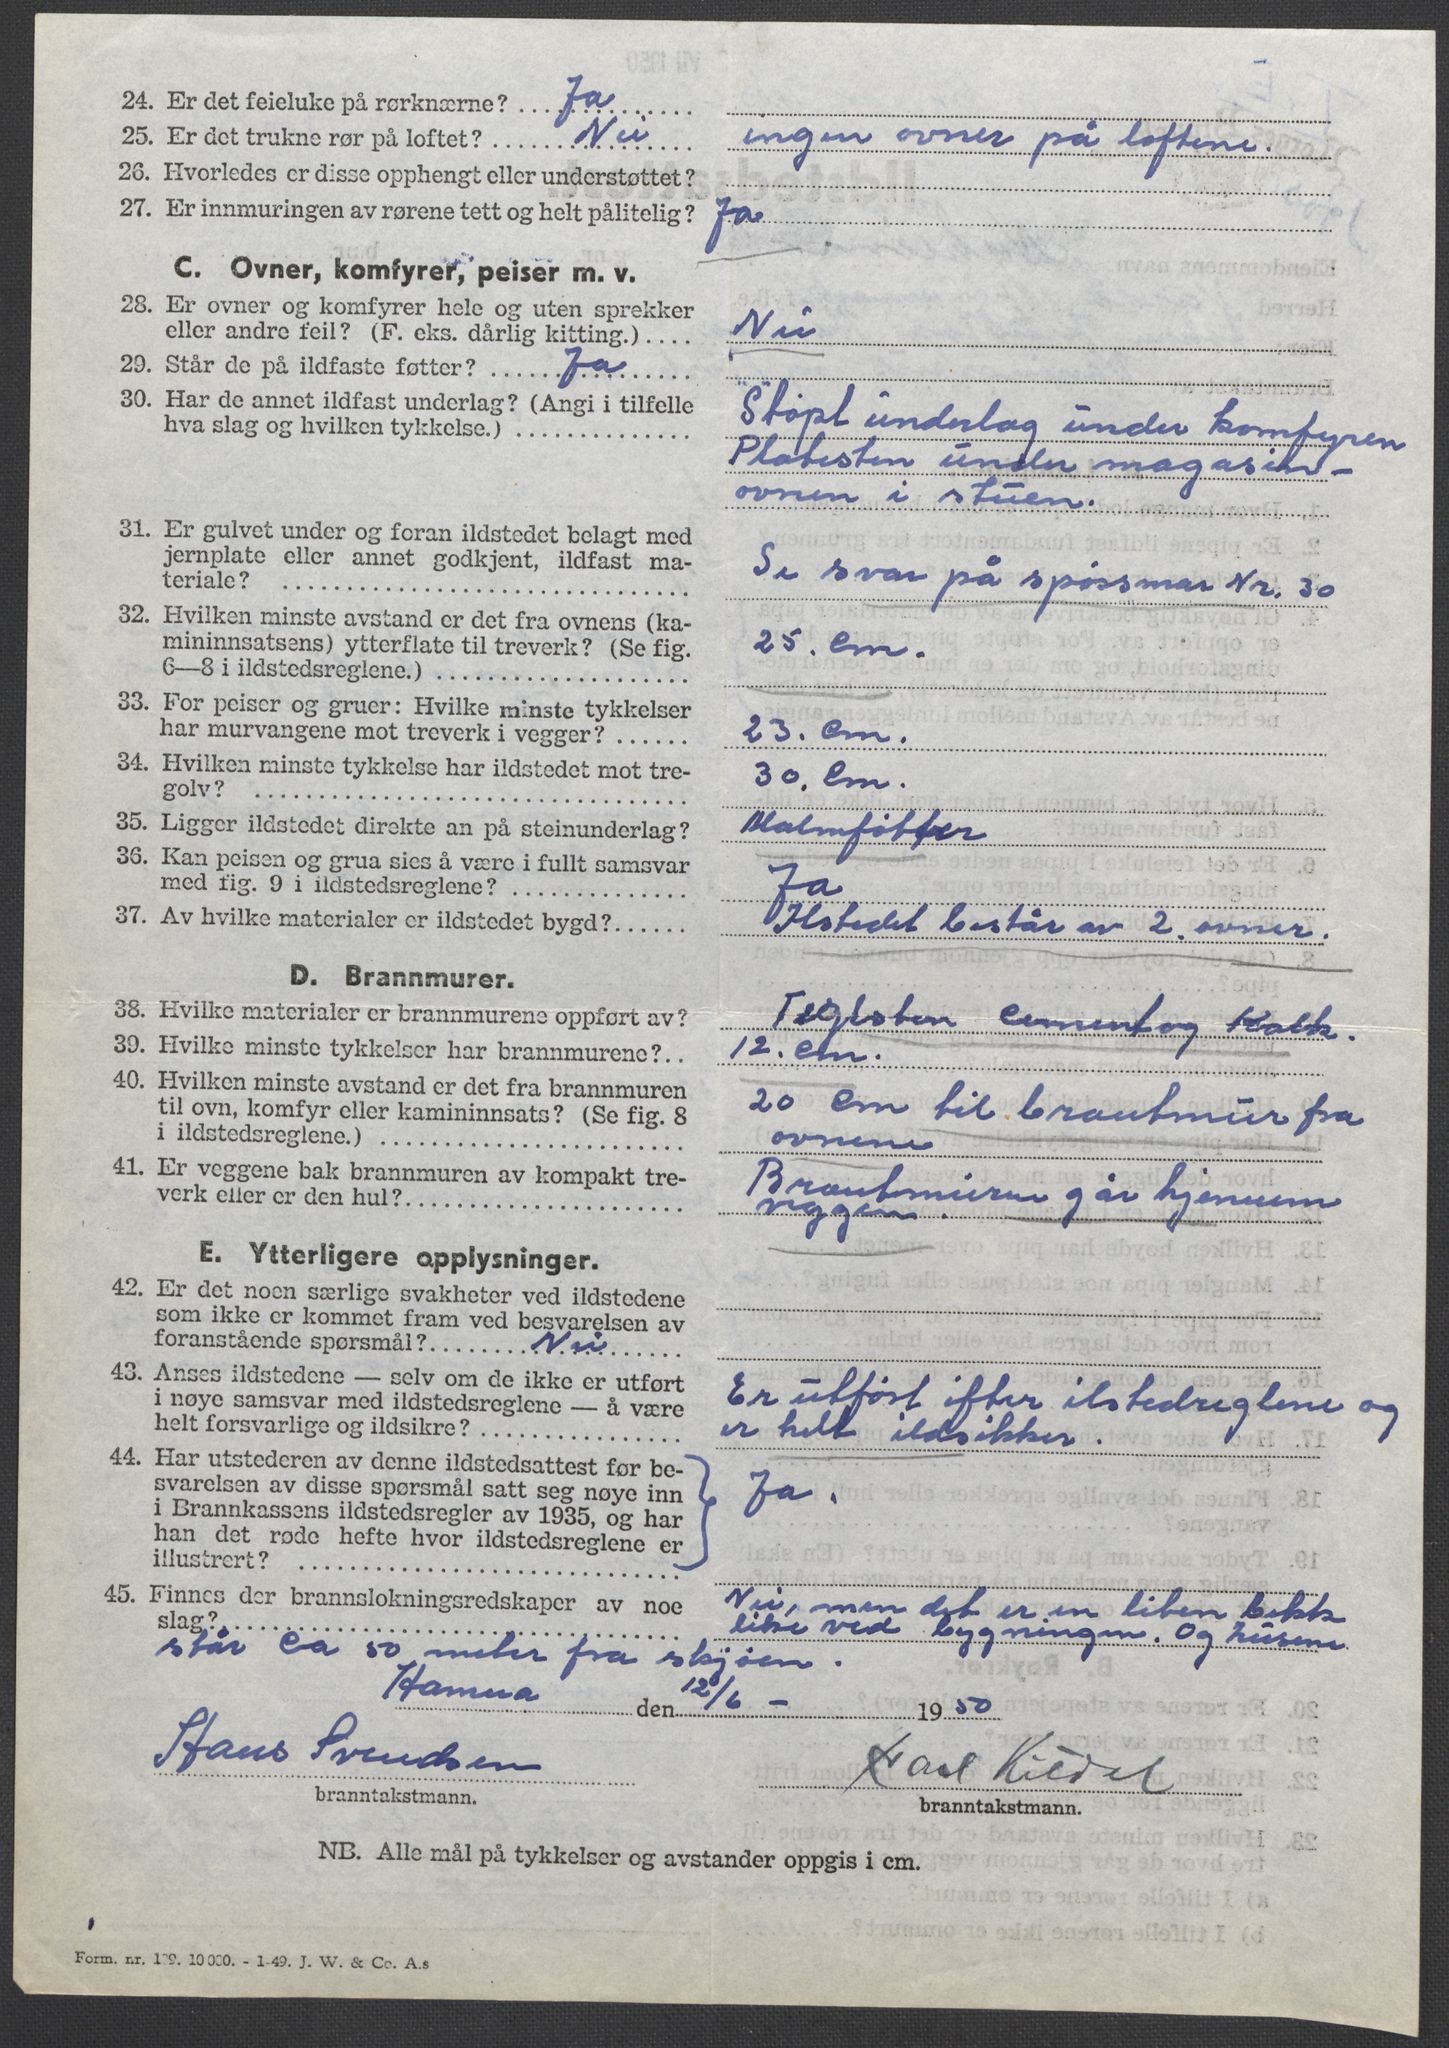 24. Er det feieluke på rørknærne? .... Ja
25. Er det trukne rør på loftet? .... Nei ingen ovner på loftene.
26. Hvorledes er disse opphengt eller understøttet?
27. Er innmuringen av rørene tett og helt pålitelig? Ja
C. Ovner, komfyrer, peiser m. v.
28. Er ovner og komfyrer hele og uten sprekker
eller andre feil? (F. eks. dårlig kitting.) .... Nei
29. Står de på ildfaste føtter? .... Ja
30. Har de annet ildfast underlag? (Angi i tilfelle
hva slag og hvilken tykkelse.) .... "Støpt" underlag under komfyren
Platesten under magasin-
ovnen i stuen.
31. Er gulvet under og foran ildstedet belagt med
jernplate eller annet godkjent, ildfast ma-
teriale? .... Se svar på spøssmar Nr. 30
32. Hvilken minste avstand er det fra ovnens (ka-
mininnsatsens) ytterflate til treverk? (Se fig.
6—8 i ildstedsreglene.) .... 25. cm.
33. For peiser og gruer: Hvilke minste tykkelser
har murvangene mot treverk i vegger? .... 23. cm.
34. Hvilken minste tykkelse har ildstedet mot tre-
golv? .... 30. Cm.
35. Ligger ildstedet direkte an på steinunderlag? Malmføtter
36. Kan peisen og grua sies å være i fullt samsvar
med fig. 9 i ildstedsreglene? .... Ja
37. Av hvilke materialer er ildstedet bygd? .... Ilstedet består av 2. ovner.
D. Brannmurer.
38. Hvilke materialer er brannmurene oppført av? Teglsten cement og Kalk.
39. Hvilke minste tykkelser har brannmurene? .. 12. cm.
40. Hvilken minste avstand er det fra brannmuren
til ovn, komfyr eller kamininnsats? (Se fig. 8
i ildstedsreglene.) .... 20 cm til brantmur fra
ovnene
41. Er veggene bak brannmuren av kompakt tre-
verk eller er den hul? .... Brantmurene går hjennem
veggen.
E. Ytterligere opplysninger.
42. Er det noen særlige svakheter ved ildstedene
som ikke er kommet fram ved besvarelsen av
foranstående spørsmål? .... Nei
43. Anses ildstedene — selv om de ikke er utført
i nøye samsvar med ildstedsreglene — å være
helt forsvarlige og ildsikre? .... Er utført ifter ilstedreglene og
er helt ildsikker.
44. Har utstederen av denne ildstedsattest før be-
svarelsen av disse spørsmål satt seg nøye inn
i Brannkassens ildstedsregler av 1935, og har
han det røde hefte hvor ildstedsreglene er
illustrert? .... Ja.
45. Finnes der brannslokningsredskaper av noe
slag? .... Nei, men det er en liten bekk
like ved bygningen. Og husene
står ca 50 meter fra skjøen.
Hamna den 12/6 - 1950
Hans Svendsen Karl Kildal
branntakstmann. branntakstmann.
NB. Alle mål på tykkelser og avstander oppgis i cm.
Form. nr. 129. 10 000. - 1-49. J. W. & Co. A.s